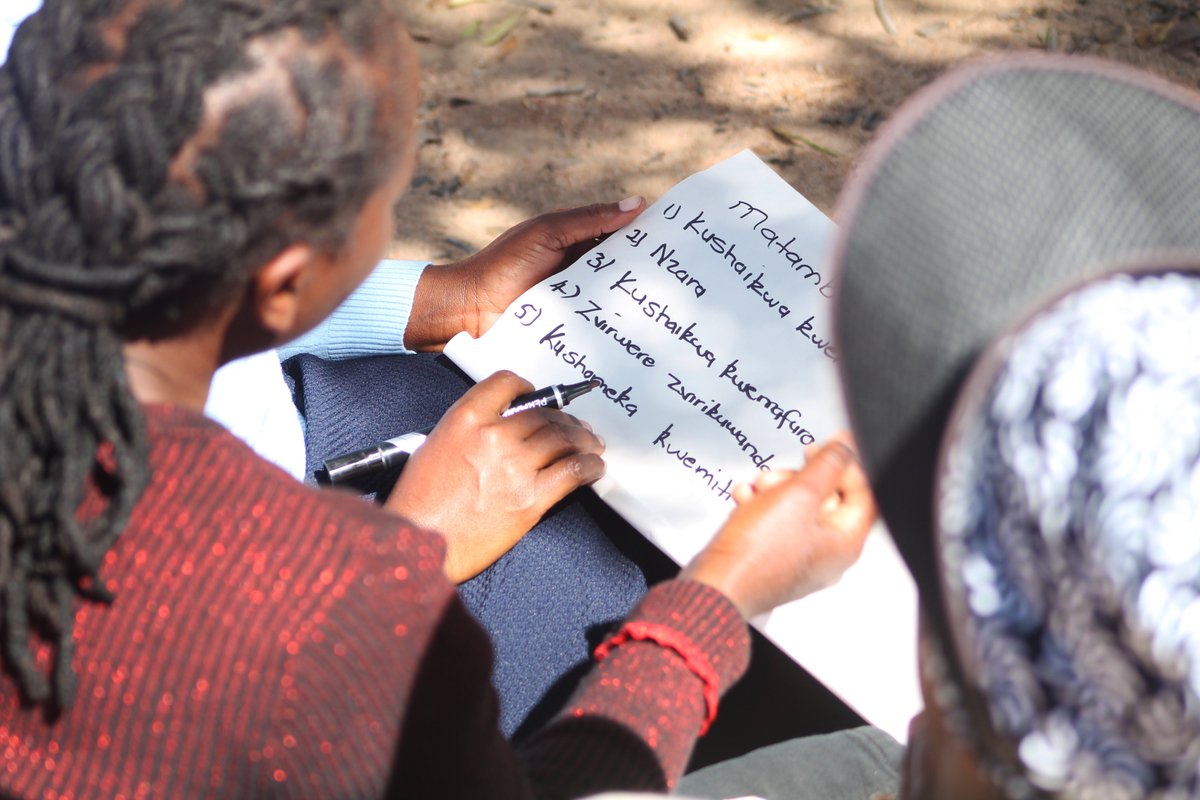 Matamb
1) Kushaikwa kwe
2) Nzara
3) Kushaikwa kwemafuro
4) Zvirwere Zvirikuwanda
5) Kushomeka kwemiti